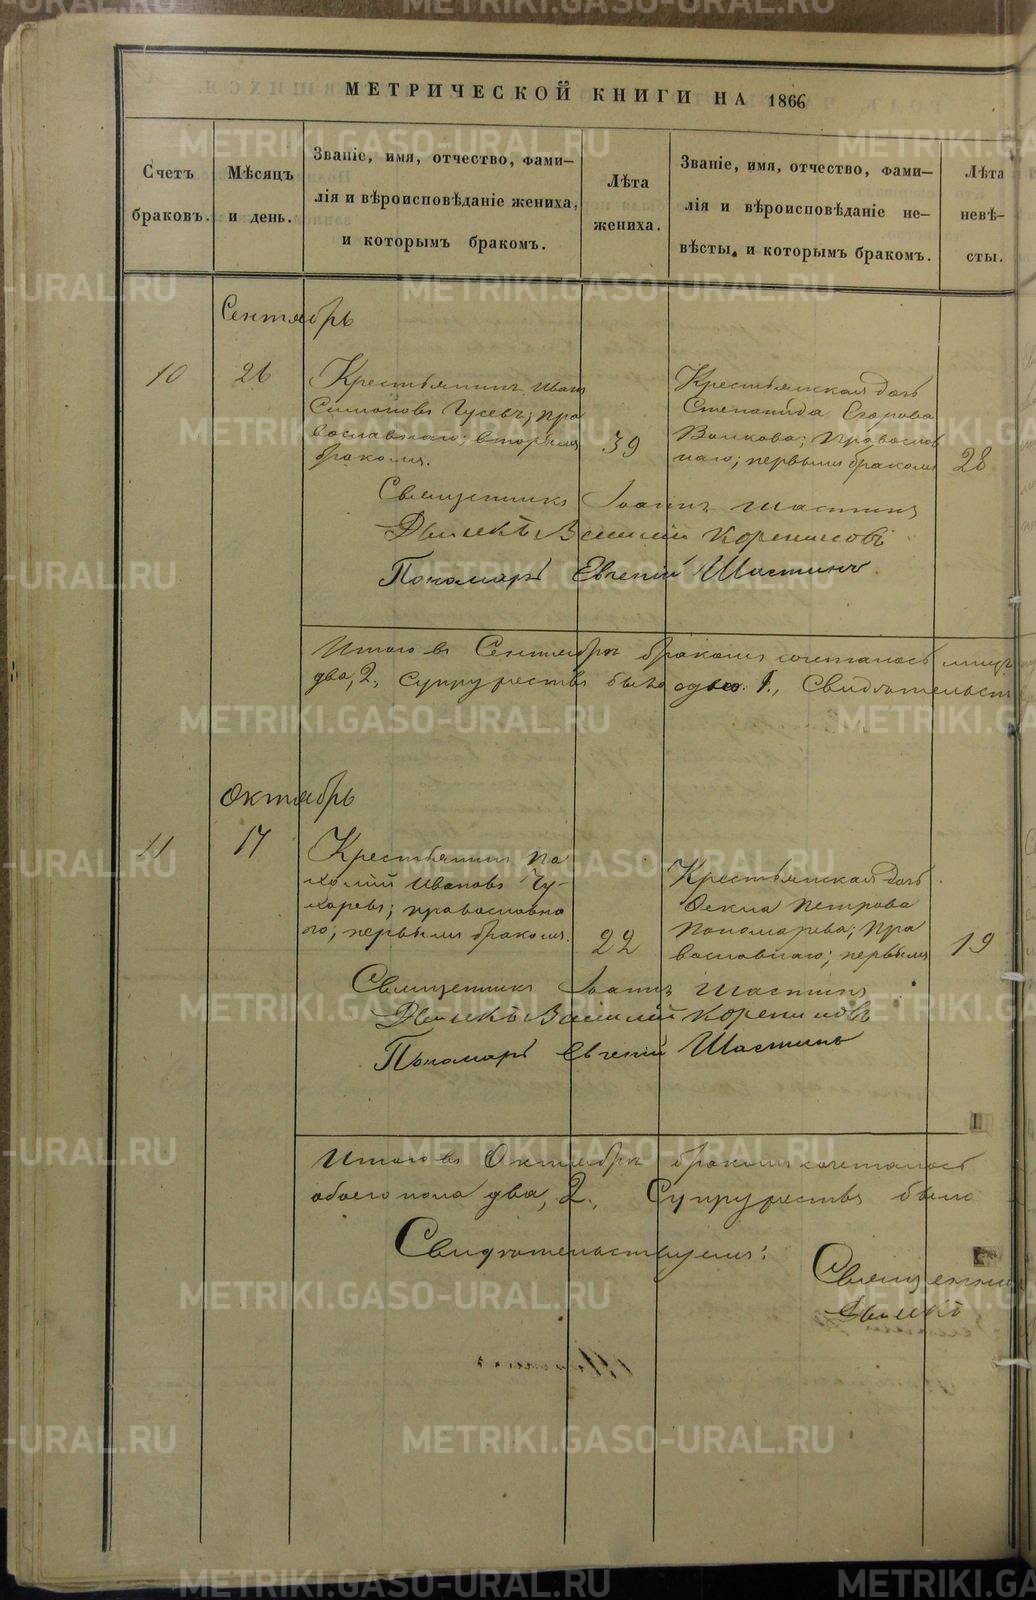 МЕТРИЧЕСКОЙ КНИГИ НА 1866
Счетъ браковъ.
Мѣсяцъ и день.
Званіе, имя, отчество, фами-
лія и вѣроисповѣданіе жениха,
и которымъ бракомъ.
Лѣта жениха.
Званіе, имя, отчество, фами-
лія и вѣроисповѣданіе не-
вѣсты, и которымъ бракомъ.
Лѣта невѣ-
сты.
Сентябрь
10
26
Крестьянинъ Иванъ
Симоновъ Гусевъ; пра
вославнаго; вторымъ
бракомъ.
39
Крестьянская дочь
Степанида Егорова
Волкова; православ
наго; первымъ бракомъ
28
Священникъ Іоаннъ Шастинъ
Дьячекъ Василій
Пономарь Евгеній Шастинъ
Итого въ Сентябрѣ бракомъ сочеталось лицъ
два, 2, Супружествъ было одно. 1., Свидѣтельст
Октябрь
11
17
Крестьянинъ Па
хомій Ивановъ Чу-
харевъ; православна
го; первымъ бракомъ.
22
Крестьянская дочь
Фекла Петрова
Пономарева; пра
вославнаго; первымъ
19
Священникъ Іоаннъ Шастинъ
Дьячекъ Василій
Пономарь Евгеній Шастинъ
Итого въ Октябрѣ бракомъ сочеталось
обоего пола два, 2. Супружествъ было
Свидѣтельствуемъ:
Священни
Дьячекъ
METRIKI.GASO-URAL.RU